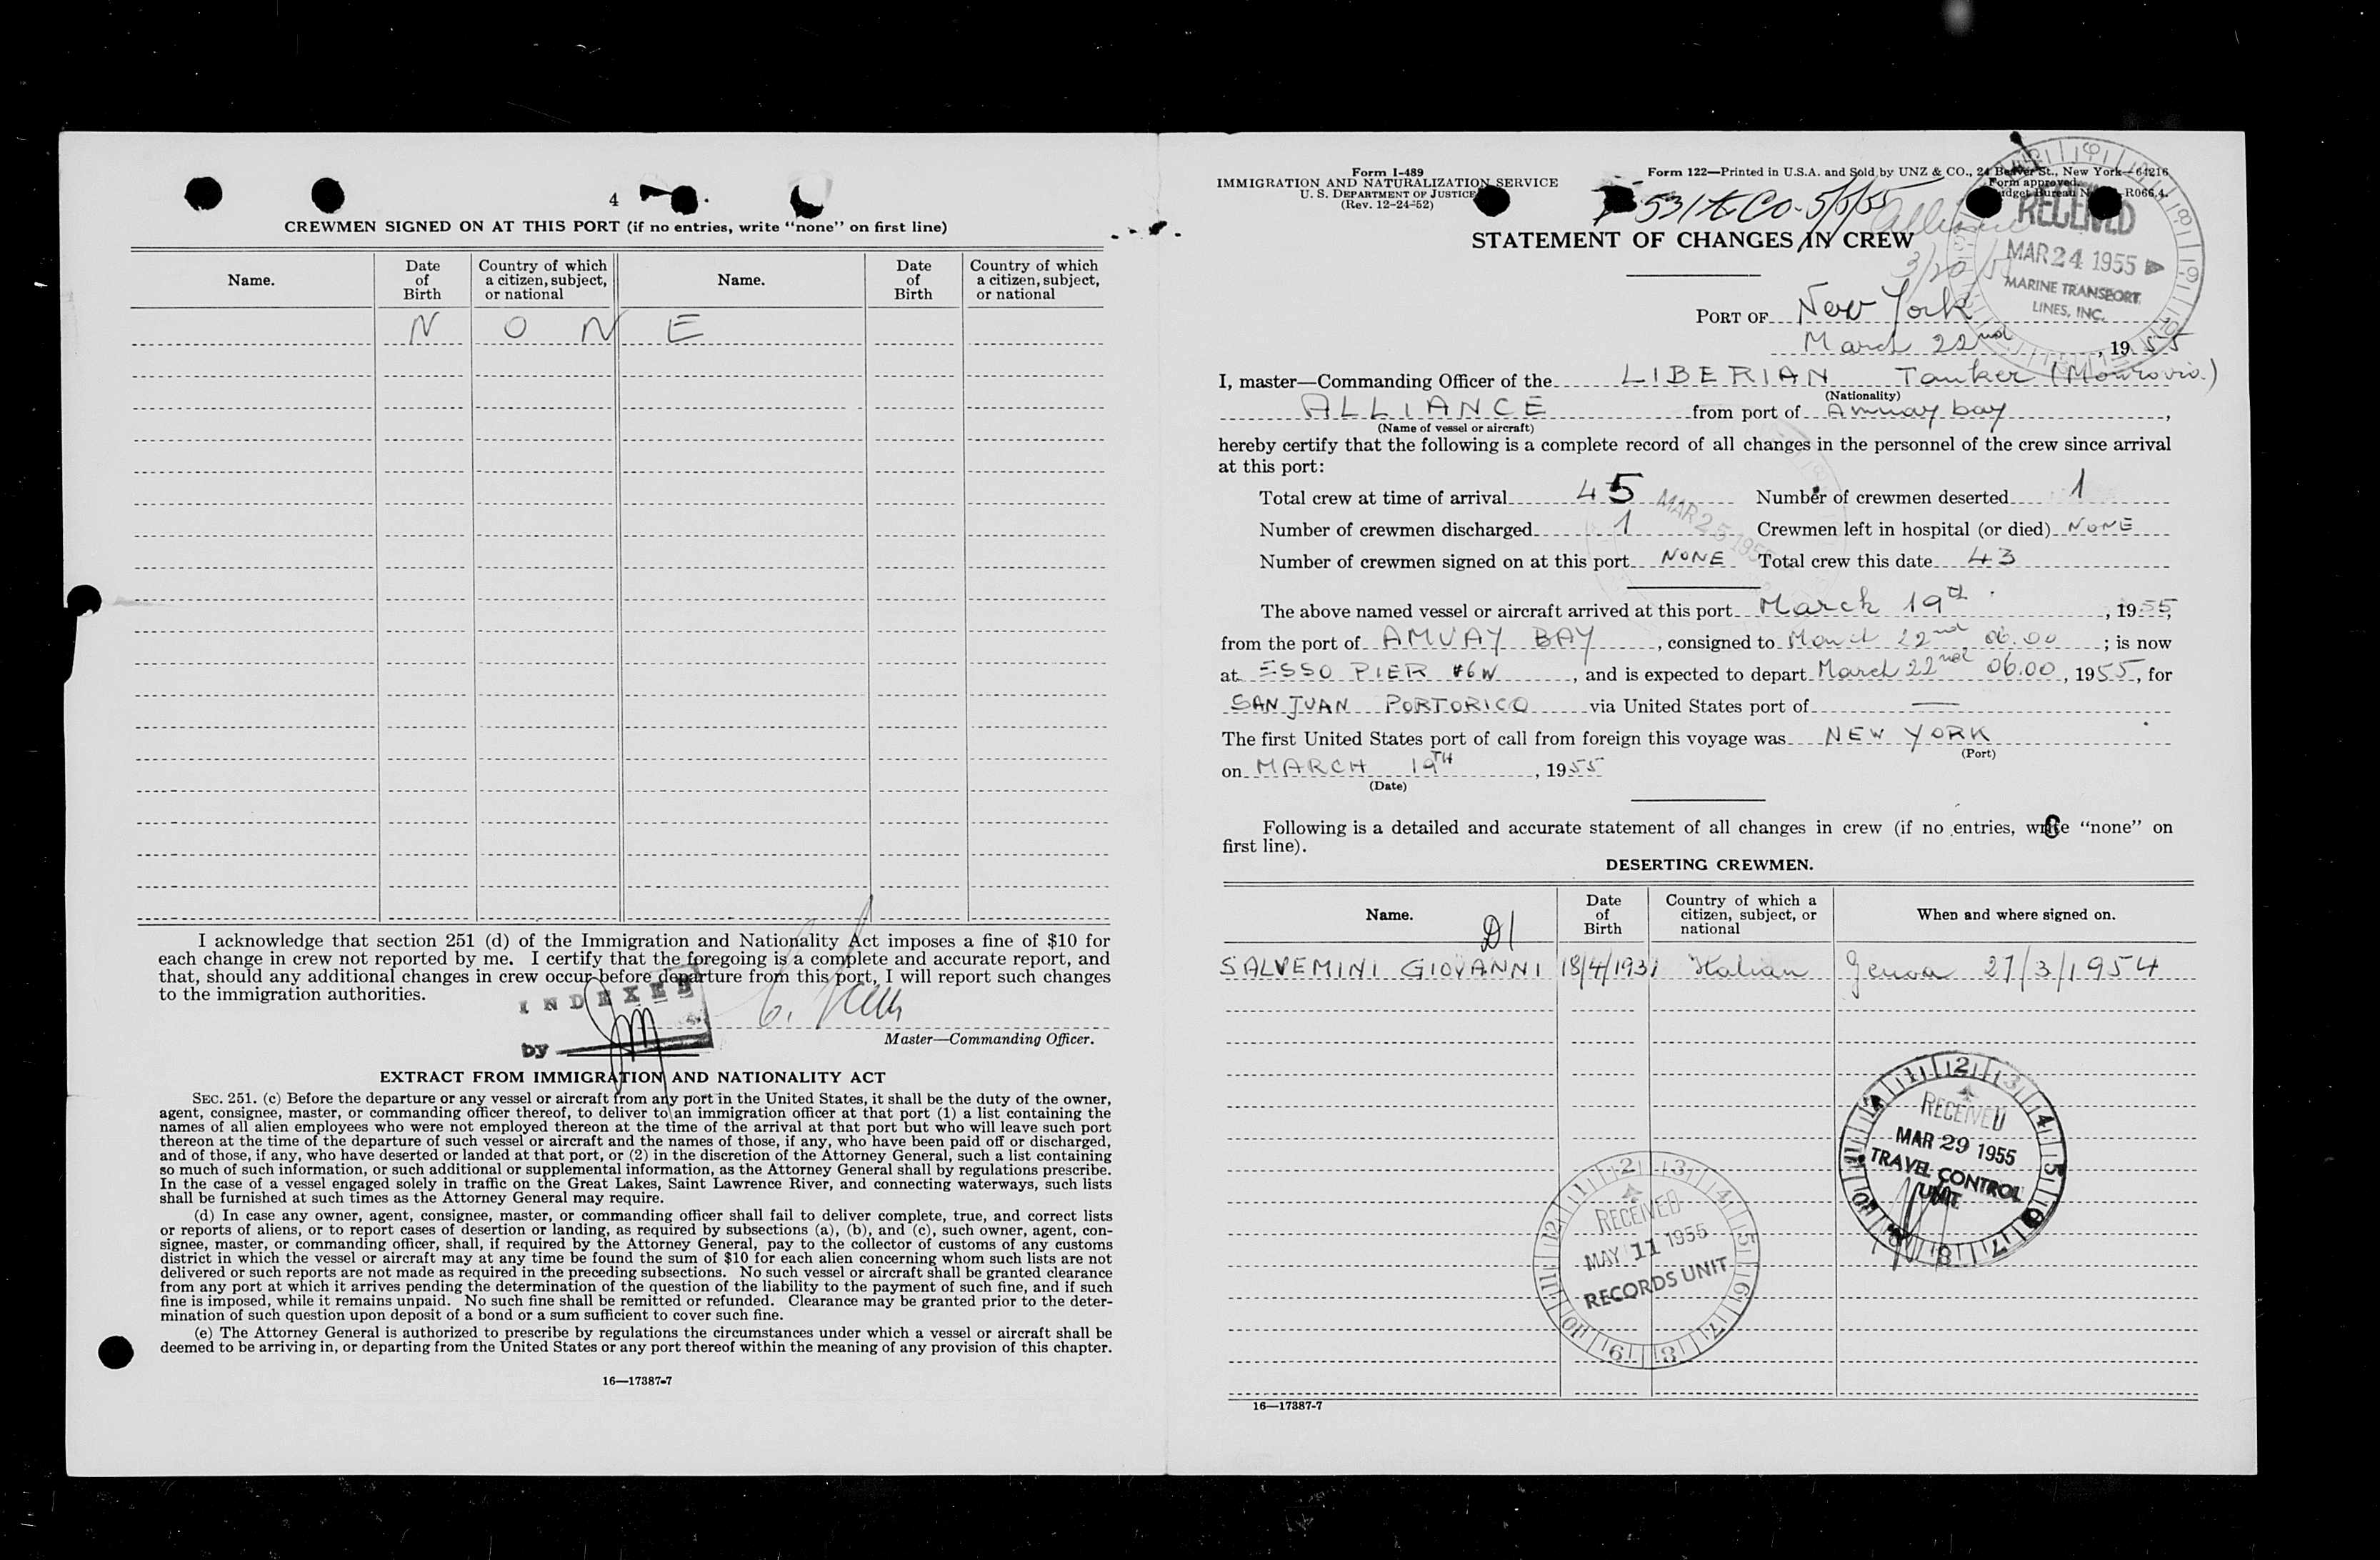 4
CREWMEN SIGNED ON AT THIS PORT (if no entries, write "none" on first line)
Name. Date of Birth Country of which a citizen, subject, or national Name. Date of Birth Country of which a citizen, subject, or national
N O N E
I acknowledge that section 251 (d) of the Immigration and Nationality Act imposes a fine of $10 for
each change in crew not reported by me. I certify that the foregoing is a complete and accurate report, and
that, should any additional changes in crew occur before departure from this port, I will report such changes
to the immigration authorities.
INDEXED
by
Master—Commanding Officer.
EXTRACT FROM IMMIGRATION AND NATIONALITY ACT
SEC. 251. (c) Before the departure or any vessel or aircraft from any port in the United States, it shall be the duty of the owner,
agent, consignee, master, or commanding officer thereof, to deliver to an immigration officer at that port (1) a list containing the
names of all alien employees who were not employed thereon at the time of the arrival at that port but who will leave such port
thereon at the time of the departure of such vessel or aircraft and the names of those, if any, who have been paid off or discharged,
and of those, if any, who have deserted or landed at that port, or (2) in the discretion of the Attorney General, such a list containing
so much of such information, or such additional or supplemental information, as the Attorney General shall by regulations prescribe.
In the case of a vessel engaged solely in traffic on the Great Lakes, Saint Lawrence River, and connecting waterways, such lists
shall be furnished at such times as the Attorney General may require.
(d) In case any owner, agent, consignee, master, or commanding officer shall fail to deliver complete, true, and correct lists
or reports of aliens, or to report cases of desertion or landing, as required by subsections (a), (b), and (c), such owner, agent, con-
signee, master, or commanding officer, shall, if required by the Attorney General, pay to the collector of customs of any customs
district in which the vessel or aircraft may at any time be found the sum of $10 for each alien concerning whom such lists are not
delivered or such reports are not made as required in the preceding subsections. No such vessel or aircraft shall be granted clearance
from any port at which it arrives pending the determination of the question of the liability to the payment of such fine, and if such
fine is imposed, while it remains unpaid. No such fine shall be remitted or refunded. Clearance may be granted prior to the deter-
mination of such question upon deposit of a bond or a sum sufficient to cover such fine.
(e) The Attorney General is authorized to prescribe by regulations the circumstances under which a vessel or aircraft shall be
deemed to be arriving in, or departing from the United States or any port thereof within the meaning of any provision of this chapter.
16—17387-7
Form I-489
IMMIGRATION AND NATURALIZATION SERVICE
U. S. DEPARTMENT OF JUSTICE
(Rev. 12-24-52)
Form 122—Printed in U.S.A. and Sold by UNZ & CO., 24 Beaver St., New York—64216
Form approved.
Budget Bureau R066.4
5/5/55
Alliance
RECEIVED
MAR 24 1955
MARINE TRANSPORT
LINES, INC.
STATEMENT OF CHANGES IN CREW
PORT OF New York
March 22nd, 1955
I, master—Commanding Officer of the LIBERIAN Tanker (Monrovia)
(Nationality)
ALLIANCE from port of Amuay bay,
(Name of vessel or aircraft)
hereby certify that the following is a complete record of all changes in the personnel of the crew since arrival
at this port:
Total crew at time of arrival 45 Number of crewmen deserted 1
Number of crewmen discharged 1 Crewmen left in hospital (or died) NONE
Number of crewmen signed on at this port NONE Total crew this date 43
MAR 25 1955
The above named vessel or aircraft arrived at this port March 19th, 1955,
from the port of AMUAY BAY, consigned to March 22nd 06.00; is now
at ESSO PIER #6W, and is expected to depart March 22nd 06.00, 1955, for
SAN JUAN PORTORICO via United States port of —
The first United States port of call from foreign this voyage was NEW YORK
(Port)
on MARCH 19TH, 1955
(Date)
Following is a detailed and accurate statement of all changes in crew (if no entries, write "none" on
first line).
DESERTING CREWMEN.
Name. Date of Birth Country of which a citizen, subject, or national When and where signed on.
D1
SALVEMINI GIOVANNI 18/4/1931 Italian Genoa 27/3/1954
RECEIVED
MAR 29 1955
TRAVEL CONTROL
UNIT
RECEIVED
MAY 11 1955
RECORDS UNIT
16—17387-7